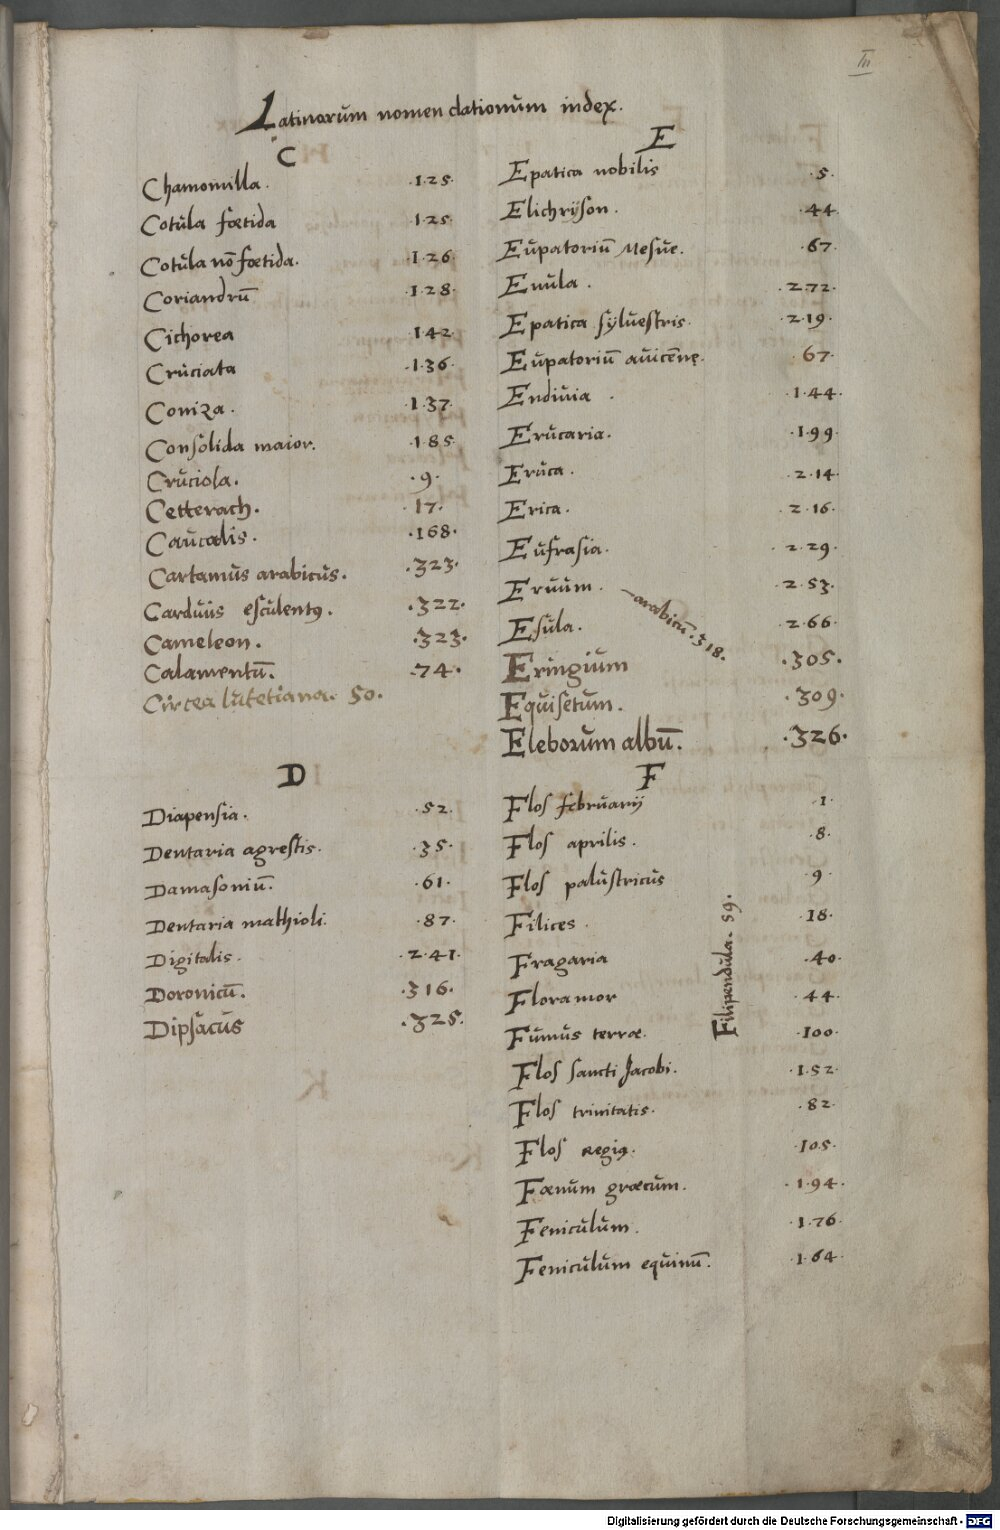 III
Latinarum nomenclationum index.
C
Chamomilla. ·125·
Cotula fœtida ·125·
Cotula nō fœtida. ·126·
Coriandrū ·128·
Cichorea ·142·
Cruciata ·136·
Coniza. ·137·
Consolida maior. ·185·
Cruciola. ·9·
Cetterach. ·17·
Caucalis. ·168·
Cartamus arabicus. ·323·
Carduus esculentꝯ. ·322·
Cameleon. ·323·
Calamentū. ·74·
Circea lutetiana. 50.
D
Diapensia. ·52·
Dentaria agrestis. ·35·
Damasoniū. ·61·
Dentaria mathioli. ·87·
Digitalis. ·241·
Doronicū. ·316·
Dipsacus ·325·
E
Epatica nobilis ·5·
Elichrÿson. ·44·
Eupatoriū Mesue. ·67·
Enula. ·272·
Epatica sylvestris. ·219·
Eupatoriū avicēnę. ·67·
Endivia. ·144·
Erucaria. ·199·
Eruca. ·214·
Erica. ·216·
Eufrasia. ·229·
Ervum. ·253·
Esula. ·266·
arabicū. 318.
Eringium ·305·
Equisetum. ·309·
Eleborum albū. ·326·
F
Flos februarij ·1·
Flos aprilis. ·8·
Flos palustricus ·9·
Filices. ·18·
Fragaria ·40·
Floramor ·44·
Filipendula. 59.
Fumus terræ. ·100·
Flos sancti Jacobi. ·152·
Flos trinitatis. ·82·
Flos Regiꝯ. ·105·
Fœnum græcum. ·194·
Feniculum. ·176·
Feniculum equinū. ·164·
Digitalisierung gefördert durch die Deutsche Forschungsgemeinschaft - DFG